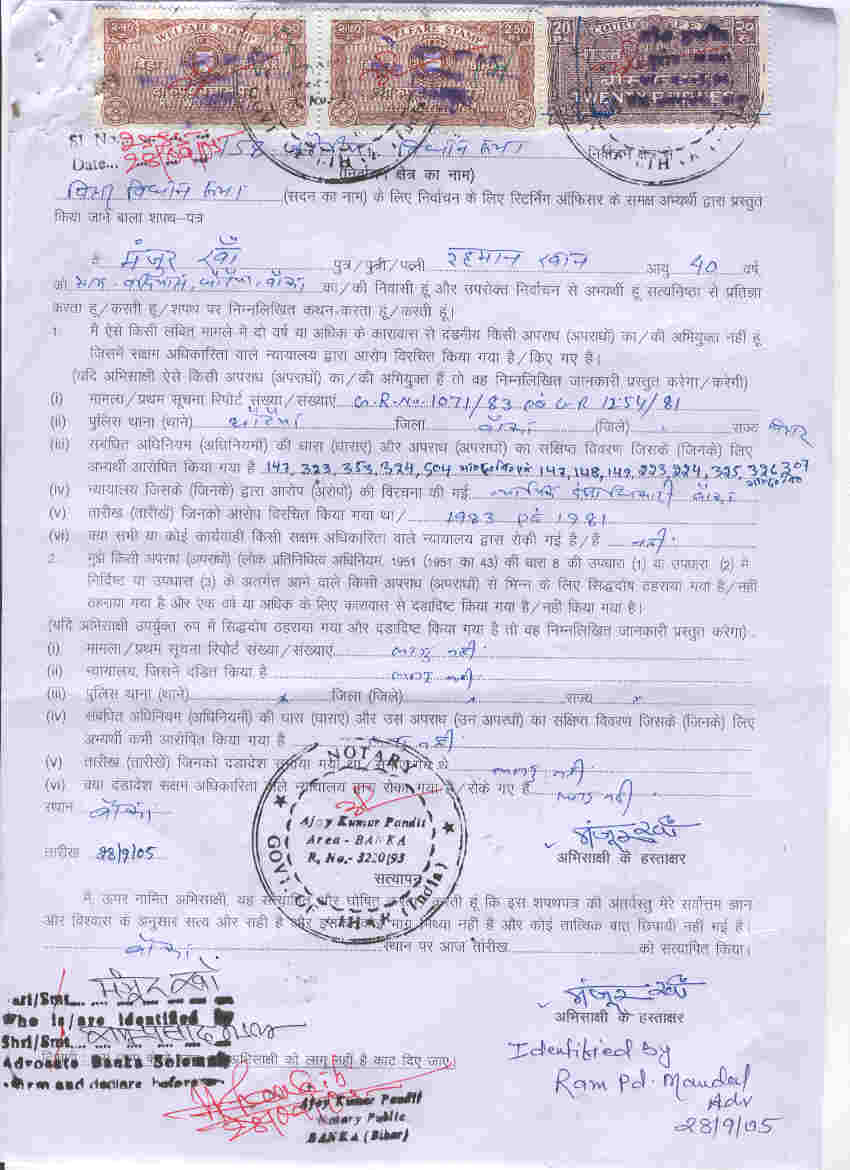 WELFARE STAMP
WELFARE STAMP
COURT FEE
बिहार
TWENTY RUPEES
Sl. No.
Date... 28/09/05
158 विधान सभा
(निर्वाचन क्षेत्र का नाम)
विधान सभा (सदन का नाम) के लिए निर्वाचन के लिए रिटर्निंग ऑफिसर के समक्ष अभ्यर्थी द्वारा प्रस्तुत
किया जाने बाला शपथ–पत्र
मै मंजुर खाँ पुत्र/पुत्री/पत्नी रहमान खान आयु 40 वर्ष
जो बाँका का/की निवासी हूं और उपरोक्त निर्वाचन से अभ्यर्थी हूं सत्यनिष्ठा से प्रतिज्ञा
करता हूं/करती हूं/शपथ पर निम्नलिखित कथन करता हूं/करती हूं।
1. मै ऐसे किसी लंबित मामले मे दो वर्ष या अधिक के कारावास से दंडनीय किसी अपराध (अपराधों) का/की अभियुक्त नहीं हूं
जिसमें सक्षम अधिकारिता वाले न्यायालय द्वारा आरोप विरचित किया गया है/किए गए है।
(यदि अभिसाक्षी ऐसे किसी अपराध (अपराधों) का/की अभियुक्त हैं तो वह निम्नलिखित जानकारी प्रस्तुत करेगा/करेगी)
(i) मामला/प्रथम सूचना रिपोर्ट संख्या/संख्याएं G.R.No. 1071/83 एवं G.R 1254/81
(ii) पुलिस थाना (थाने) जिला बाँका (जिले) राज्य बिहार
(iii) संबंधित अधिनियम (अधिनियमों) की धारा (धाराए) और अपराध (अपराधों) का संक्षिप्त विवरण जिसके (जिनके) लिए
अभ्यर्थी आरोपित किया गया है 147, 323, 353, 324, 504 147, 148, 149, 223, 224, 325, 326, 307
(iv) न्यायालय जिसके (जिनके) द्वारा आरोप (अरोपों) की विरचना की गई न्यायिक दंडाधिकारी बाँका
(v) तारीख (तारीखों) जिनको आरोप विरचित किया गया था/ 1983 एवं 1981
(vi) क्या सभी या कोई कार्यवाही किसी सक्षम अधिकारिता वाले न्यायालय द्वारा रोकी गई है/हैं नहीं
2. मुझे किसी अपराध (अपराधों) (लोक प्रतिनिधित्व अधिनियम, 1951 (1951 का 43) की धारा 8 की उपधारा (1) या उपधारा (2) मे
निर्दिष्ट या उपधारा (3) के अंतर्गत आने वाले किसी अपराध (अपराधों) से भिन्न के लिए सिद्धदोष ठहराया गया है/नहीं
ठहराया गया है और एक वर्ष या अधिक के लिए कारावास से दंडादिष्ट किया गया है/नहीं किया गया है।
(यदि अभिसाक्षी उपर्युक्त रुप में सिद्धदोष ठहराया गया और दंडादिष्ट किया गया है तो वह निम्नलिखित जानकारी प्रस्तुत करेगा)
(i) मामला/प्रथम सूचना रिपोर्ट संख्या/संख्याएं लागु नहीं
(ii) न्यायालय, जिसने दंडित किया है लागु नहीं
(iii) पुलिस थाना (थाने) x जिला (जिले) x राज्य x
(iv) संबंधित अधिनियम (अधिनियमों) की धारा (धाराए) और उस अपराध (उन अपराधों) का संक्षिप्त विवरण जिसके (जिनके) लिए
अभ्यर्थी कमी आरोपित किया गया है लागु नहीं
(v) तारीख (तारीखें) जिनको दंडादेश गया था गए थे लागु नहीं
(vi) क्या दंडादेश सक्षम अधिकारिता वाले न्यायालय द्वारा रोका गया है/रोके गए हैं लागु नहीं
स्थान बाँका
तारीख 28/9/05
मंजुर खाँ
अभिसाक्षी के हस्ताक्षर
NOTARY
Ajay Kumar Pandit
Area - BANKA
R. No.- 3220/93
GOVT. OF BIHAR (India)
सत्यापन
मै, ऊपर नामित अभिसाक्षी, यह सत्यापित और घोषित करती हूं कि इस शपथपत्र की अंतर्वस्तु मेरे सर्वोत्तम ज्ञान
और विश्वास के अनुसार सत्य और सही है और इसका कोई भाग मिथ्या नहीं है और कोई तात्विक बात छिपायी नहीं गई है।
बाँका स्थान पर आज तारीख को सत्यापित किया।
मंजुर खाँ
अभिसाक्षी के हस्ताक्षर
Shri/Smt... मंजुर खाँ
Who is/are identified by
Shri/Smt.
Advocate Banka Solemn
affirm and declare before
अभिसाक्षी को लागू नहीं है काट दिए जाए।
Ajay Kumar Pandit
Notary Public
BANKA (Bihar)
Identified by
Ram Pd. Mandal
Adv
28/9/05